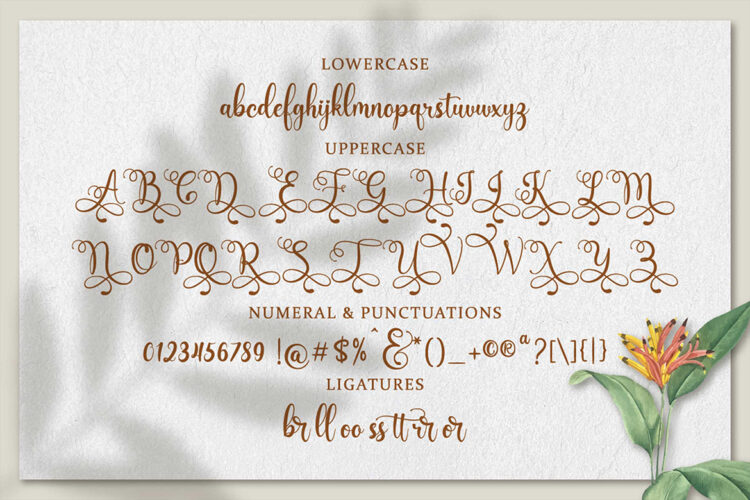 LOWERCASE
abcdefghijklmnopqrstuvwxyz
UPPERCASE
ABCD EFG HIJK LM
NOPQRSTUVWXYZ
NUMERAL & PUNCTUATIONS
0123456789 !@#$%^&*()_+©®ª?[\]{|}
LIGATURES
br ll oo ss tt rr or